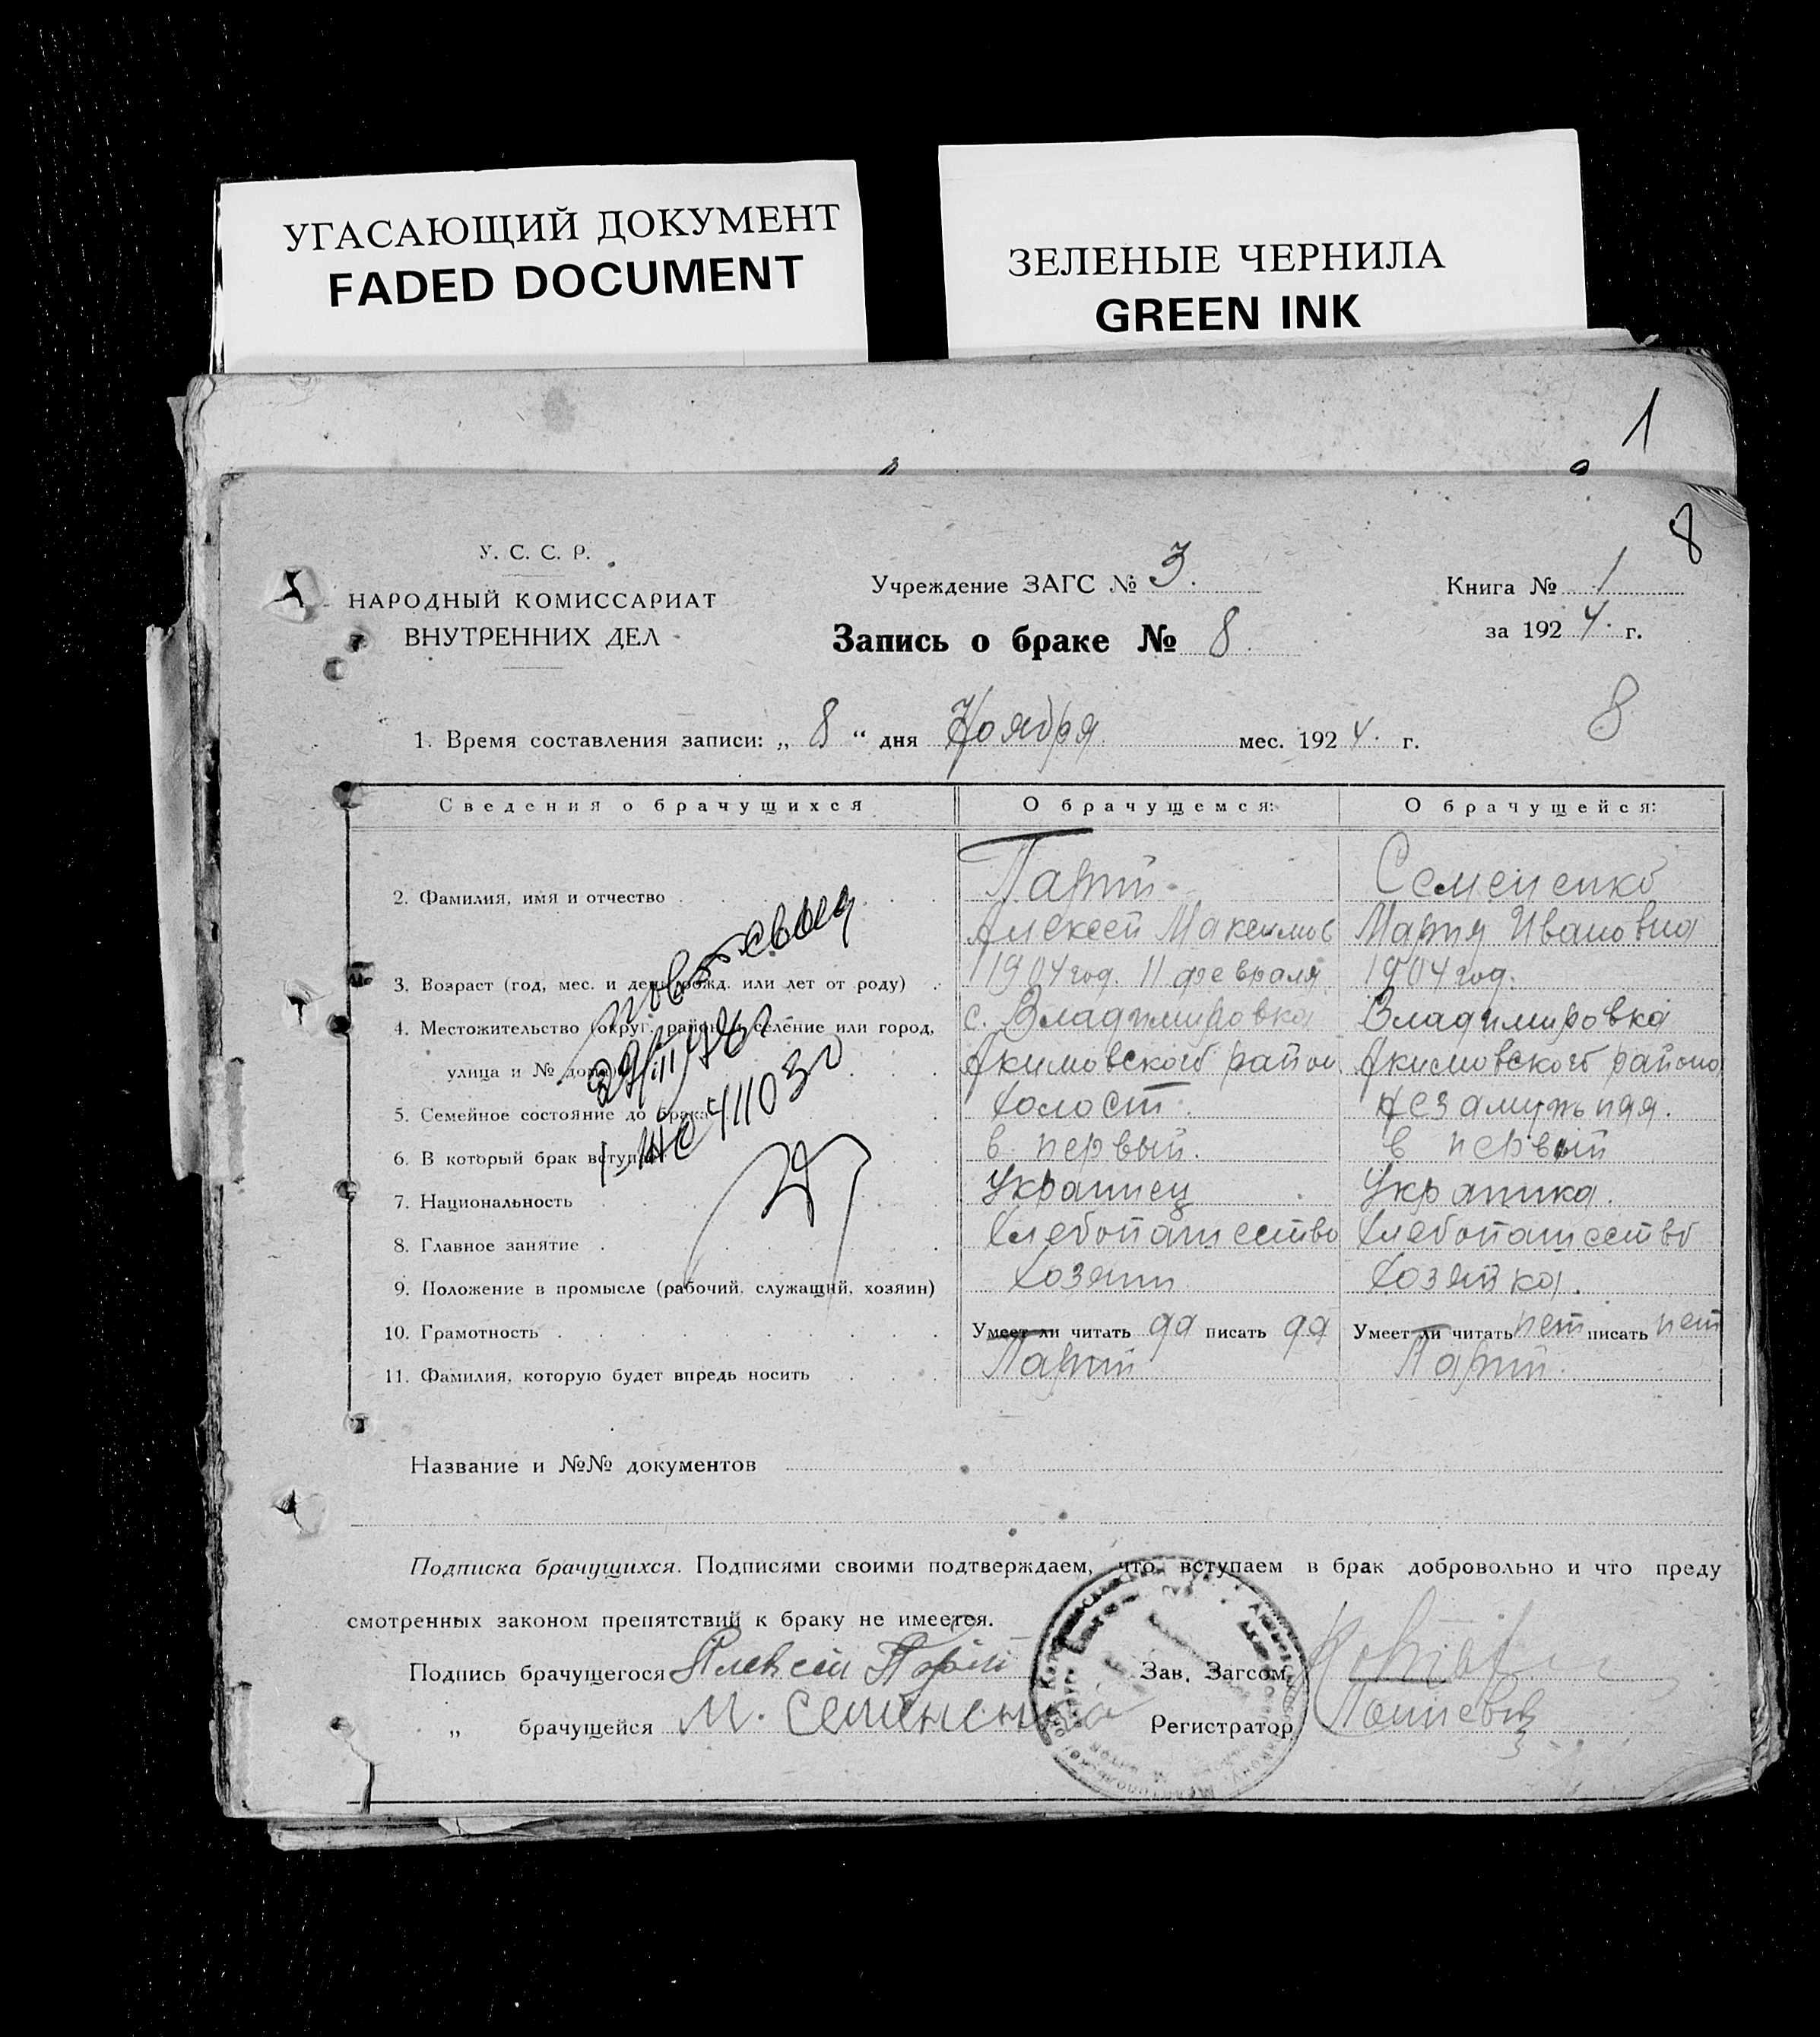 УГАСАЮЩИЙ ДОКУМЕНТ
FADED DOCUMENT
ЗЕЛЕНЫЕ ЧЕРНИЛА
GREEN INK
1
8
У. С. С. Р.
НАРОДНЫЙ КОМИССАРИАТ
ВНУТРЕННИХ ДЕЛ
Учреждение ЗАГС № 3.
Запись о браке № 8.
Книга № 1
за 1924. г.
8
1. Время составления записи: „ 8 “ дня Ноября мес. 1924. г.
Сведения о брачущихся О брачущемся: О брачущейся:
2. Фамилия, имя и отчество Семененко
Алексей Максимов Мария Ивановна
3. Возраст (год, мес. и день рожд. или лет от роду) 1904 год. 11 февраля 1904 год.
4. Местожительство (округ, район, селение или город, с. Владимировка Владимировка
улица и № дома Акимовского район Акимовского района
5. Семейное состояние до брака Холост. Незамужняя.
6. В который брак вступает в первый. в первый
7. Национальность Украинец Украинка.
8. Главное занятие Хлебопашество Хлебопашество
9. Положение в промысле (рабочий, служащий, хозяин) Хозяин Хозяйка.
10. Грамотность Умеет ли читать да писать да Умеет ли читать нет писать нет
11. Фамилия, которую будет впредь носить
411030
Название и №№ документов
Подписка брачущихся. Подписями своими подтверждаем, что вступаем в брак добровольно и что преду
смотренных законом препятствий к браку не имеется.
Подпись брачущегося Алексей Зав. Загсом
„ брачущейся М. Семененко Регистратор